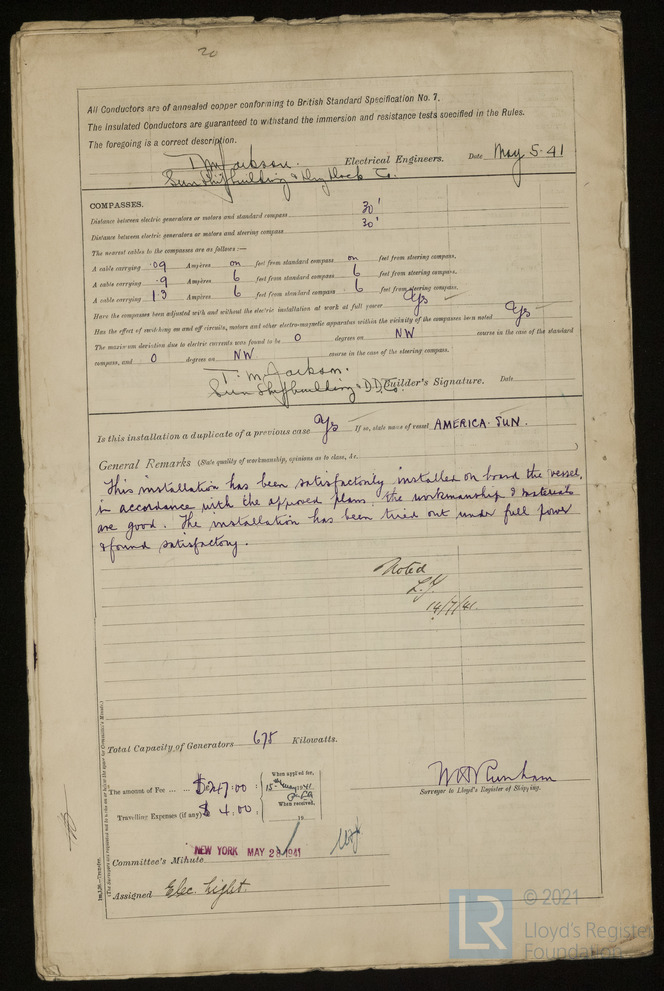 20
All Conductors are of annealed copper conforming to British Standard Specification No. 7.
The Insulated Conductors are guaranteed to withstand the immersion and resistance tests specified in the Rules.
The foregoing is a correct description.
T. M. Jackson. Electrical Engineers. Date May 5-41
Sun Shipbuilding & Dry Dock Co.
COMPASSES.
Distance between electric generators or motors and standard compass 30'
Distance between electric generators or motors and steering compass 30'
The nearest cables to the compasses are as follows:—
A cable carrying .09 Ampères on feet from standard compass on feet from steering compass.
A cable carrying .9 Ampères 6 feet from standard compass 6 feet from steering compass.
A cable carrying 1.3 Ampères 6 feet from standard compass 6 feet from steering compass.
Have the compasses been adjusted with and without the electric installation at work at full power Yes
Has the effect of switching on and off circuits, motors and other electro-magnetic apparatus within the vicinity of the compasses been noted Yes
The maximum deviation due to electric currents was found to be 0 degrees on NW course in the case of the standard
compass, and 0 degrees on NW course in the case of the steering compass.
T. M. Jackson.
Sun Shipbuilding & D.D. Co. Builder's Signature. Date
Is this installation a duplicate of a previous case Yes If so, state name of vessel AMERICA SUN.
General Remarks (State quality of workmanship, opinions as to class, &c.
This installation has been satisfactorily installed on board the vessel,
in accordance with the approved plans, the workmanship & materials
are good. The installation has been tried out under full power
& found satisfactory.
Noted
14/7/41.
Total Capacity of Generators 675 Kilowatts.
The amount of Fee ... ... $247.00 : When applied for,
15th May 1941
Travelling Expenses (if any) $ 4.00 : When received,
19
Surveyor to Lloyd's Register of Shipping.
Committee's Minute NEW YORK MAY 28 1941
Assigned Elec. Light.
LR © 2021
Lloyd's Register
Foundation